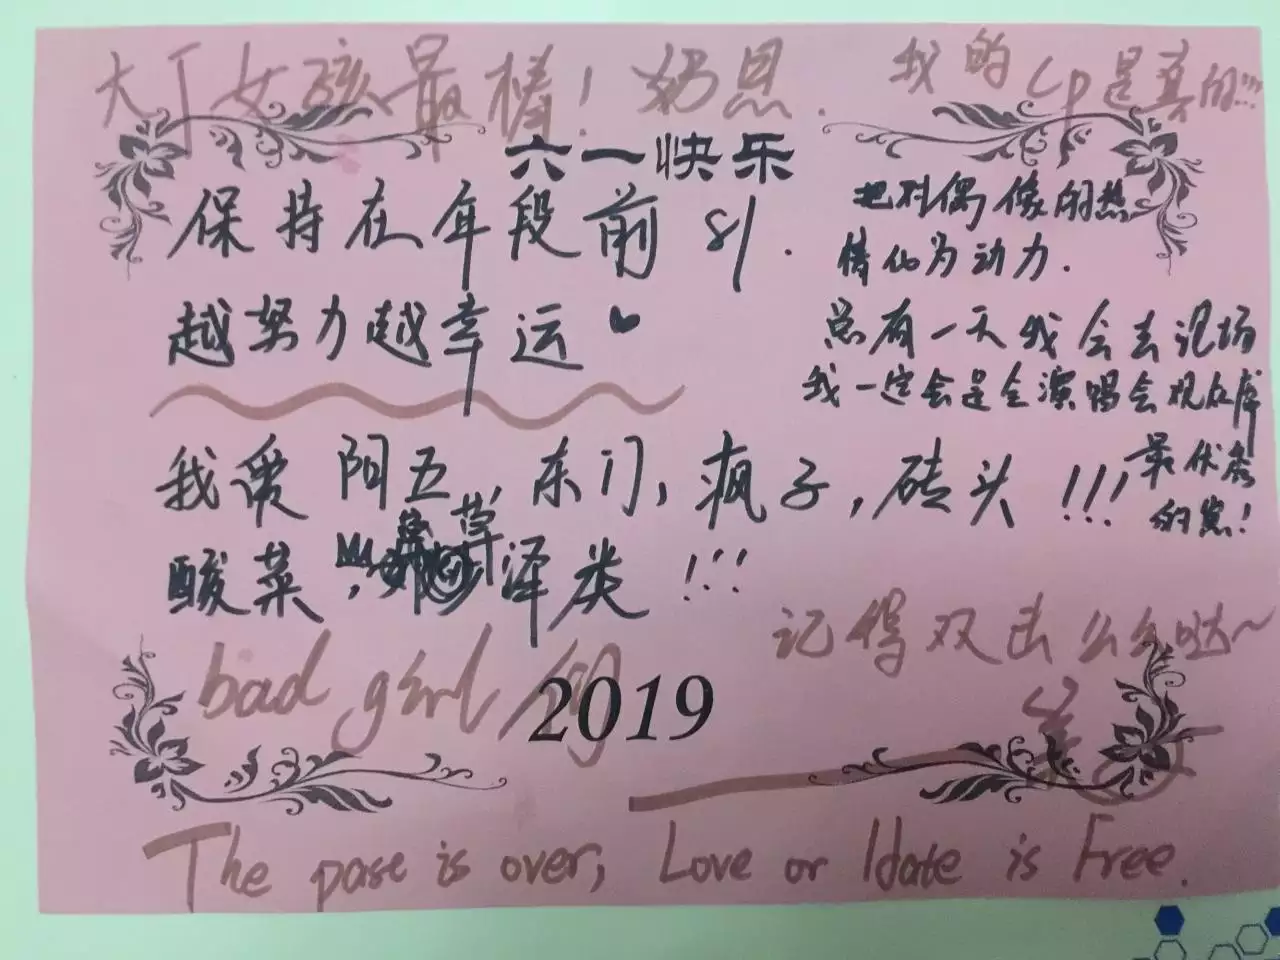 大丁女孩最棒！奶思.
我的cp是真的!!!
六一快乐
保持在年段前81.
越努力越幸运
把对偶像的热
情化为动力.
总有一天我会去现场
我一定会是全演唱会观众席
最优秀
的崽!
我爱 阳五, 东门, 疯子, 砖头 !!!
酸菜, 泽类 !!!
记得双击么么哒~
bad girl
2019
The past is over, Love or Idate is Free.